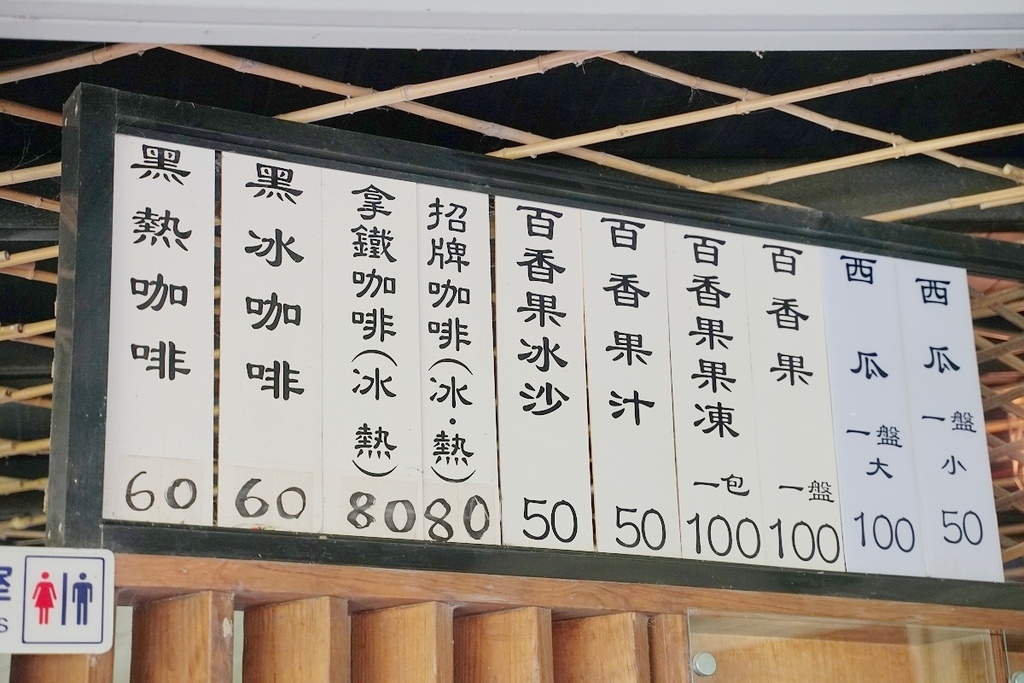 黑熱咖啡 60
黑冰咖啡 60
拿鐵咖啡(冰 熱) 80
招牌咖啡(冰·熱) 80
百香果冰沙 50
百香果汁 50
百香果果凍 一包 100
百香果 一盤 100
西瓜 一盤 大 100
西瓜 一盤 小 50